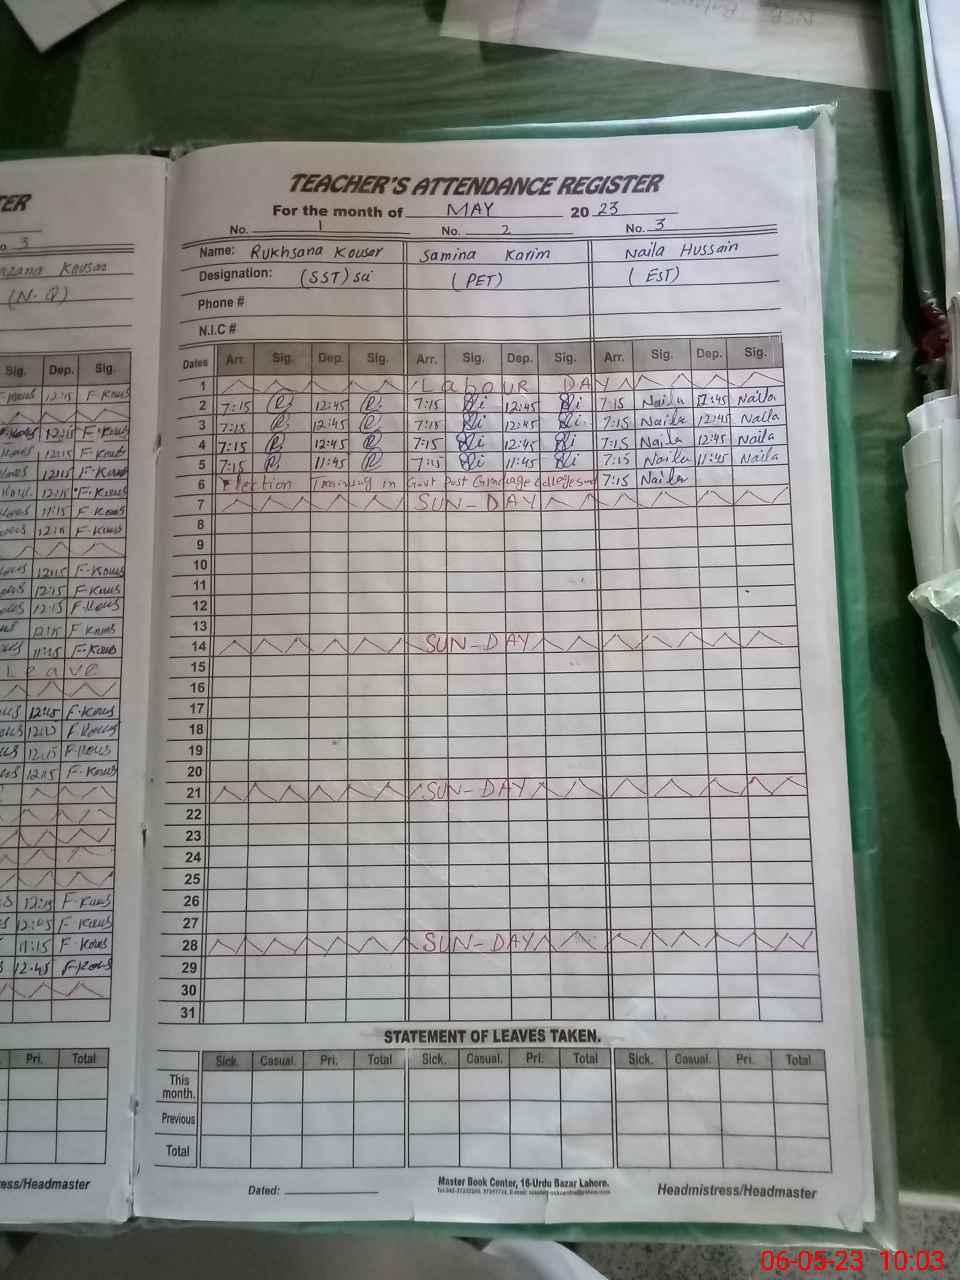 TER
o. 3
Kousar
(N-Q)
Sig. Dep. Sig.
12:15 F-Kous
12:15 F-Kous
12:15 F-Kous
12:15 F-Kous
12:15 F-Kous
11:15 F-Kous
12:15 F-Kous
12:15 F-Kous
12:15 F-Kous
12:15 F-Kous
12:15 F Kous
11:15 F-Kous
Leave
12:15 F-Kous
F-Kous
12:15 F-Kous
12:15 F-Kous
12:15 F-Kous
12:45 F-Kous
11:15 F-Kous
12:45 F-Kous
Pri. Total
ess/Headmaster
TEACHER'S ATTENDANCE REGISTER
For the month of MAY 20 23
No. 1 No. 2 No. 3
Name: Rukhsana Kousar Samina Karim Naila Hussain
Designation: (SST) sci (PET) (EST)
Phone #
N.I.C #
Dates Arr. Sig. Dep. Sig. Arr. Sig. Dep. Sig. Arr. Sig. Dep. Sig.
1 Labour DAY
2 7:15 R. 12:45 R. 7:15 12:45 7:15 Naila 12:45 Naila
3 7:15 R. 12:45 R. 7:15 12:45 7:15 Naila 12:45 Naila
4 7:15 R. 12:45 R 7:15 12:45 7:15 Naila 12:45 Naila
5 7:15 R. 11:45 R 7:15 11:45 7:15 Naila 11:45 Naila
6 Election Training in Govt Post Graduate college 7:15 Naila
7 SUN-DAY
8
9
10
11
12
13
14 SUN-DAY
15
16
17
18
19
20
21 SUN-DAY
22
23
24
25
26
27
28 SUN-DAY
29
30
31
STATEMENT OF LEAVES TAKEN.
Sick. Casual. Pri. Total Sick. Casual. Pri. Total Sick. Casual. Pri. Total
This month.
Previous
Total
Dated:
Master Book Center, 16-Urdu Bazar Lahore.
Headmistress/Headmaster
06-05-23 10:03